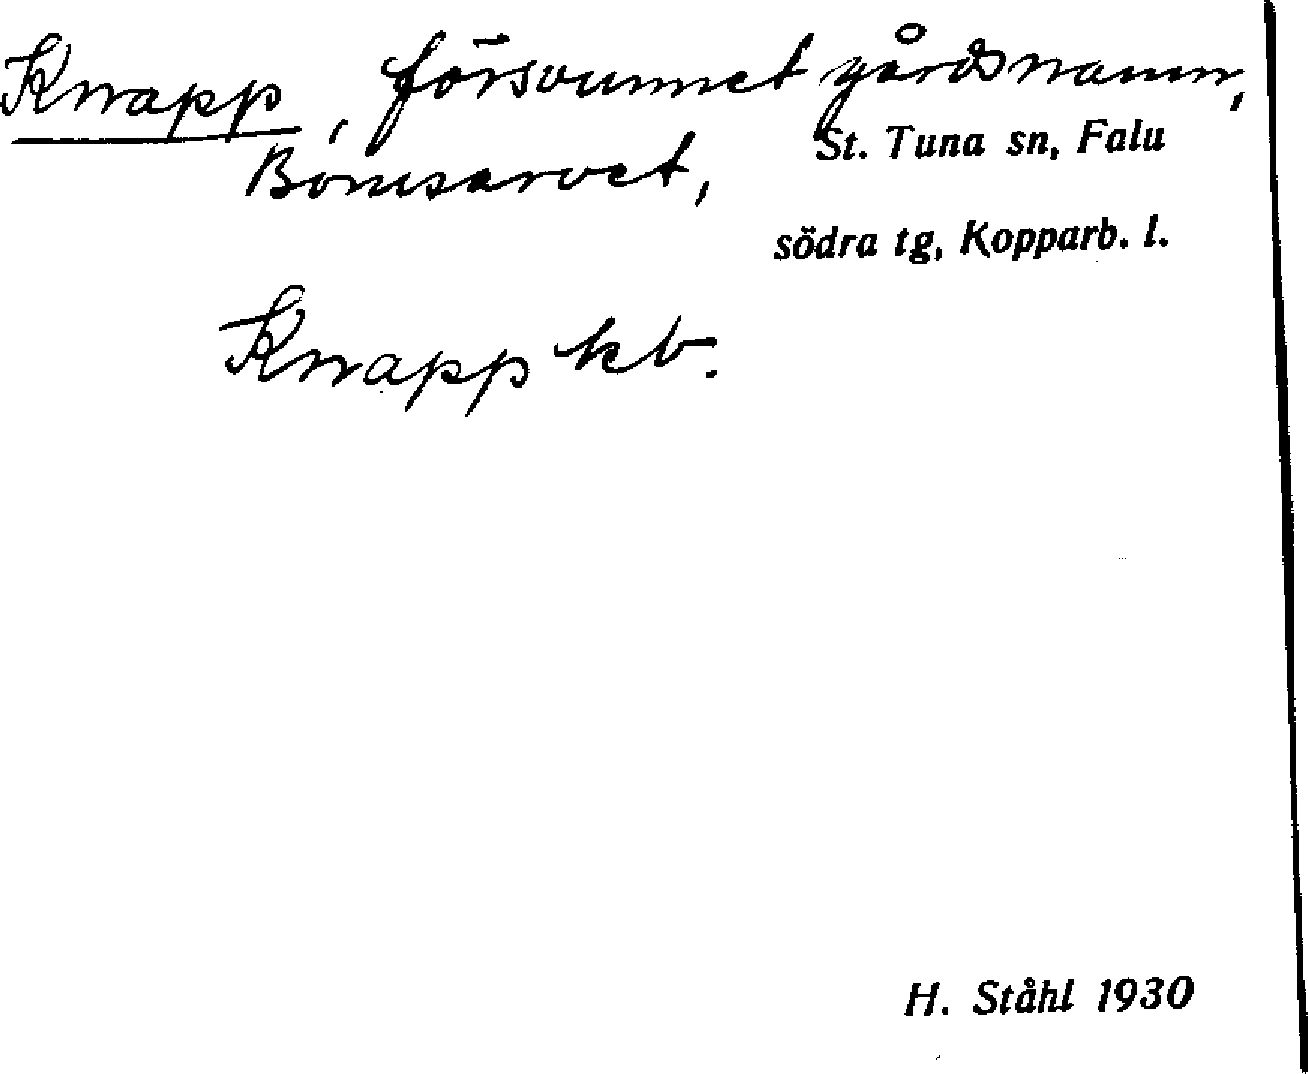 Knapp, försvunnet gårdsnamn,
Bomsarvet, St. Tuna sn, Falu
södra tg, Kopparb. l.
Knapp kb.
H. Ståhl 1930